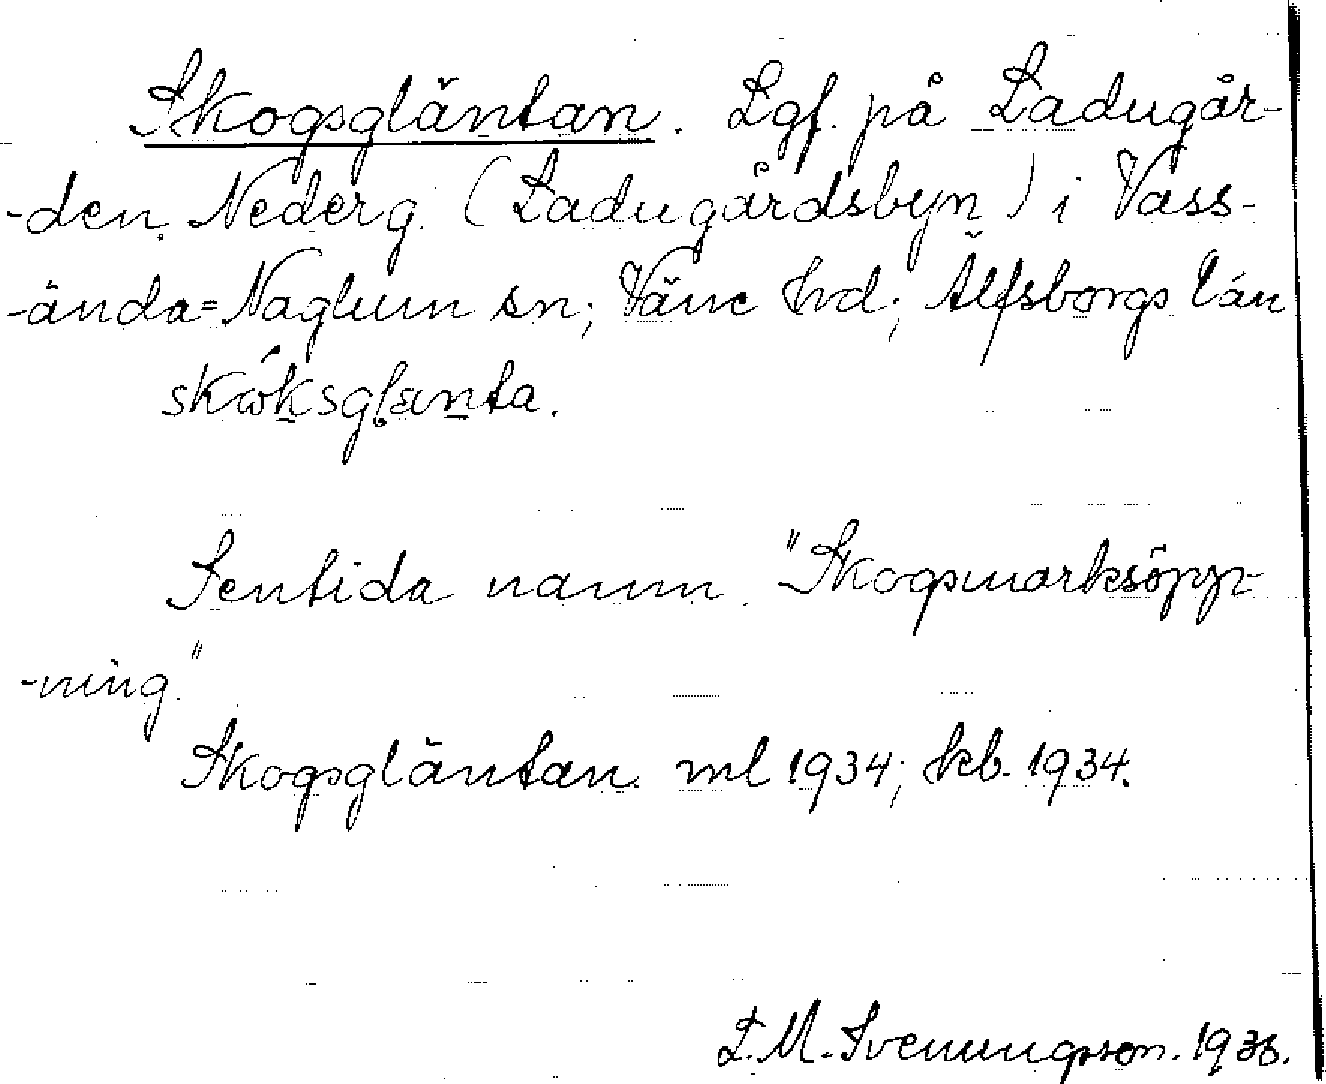 Skogsgläntan. Lgf. på Ladugår-
-den Nederg. (Ladugårdsbyn) i Vass-
-ända=Naglum sn; Väne hrd; Älfsborgs län
skωksglanta.
Sentida namn. "Skogsmarksöpp-
-ning."
Skogsgläntan ml 1934; kb. 1934.
L. M. Svenungsson. 1936.